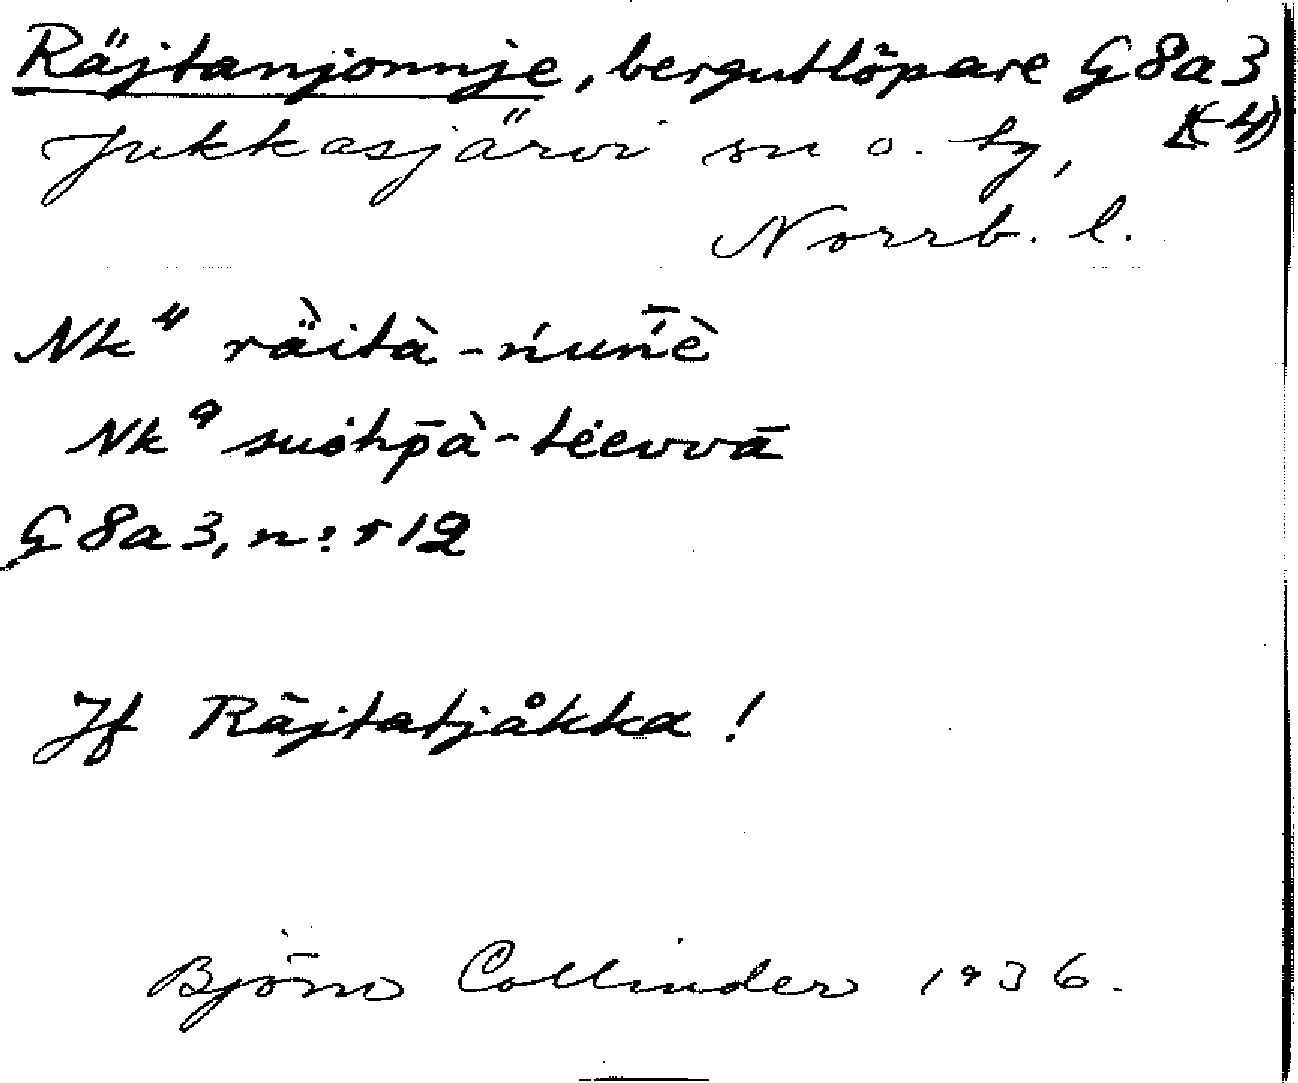 Räjtanjonnje, bergutlöpare G8a3
Jukkasjärvi sn o. by, (K4)
Norrb. l.
Nk⁴ rä̀ità-ńuńńè
Nk⁹
G8a3, n:r 12
Jf Räjtatjåkka!
Björn Collinder 1936.